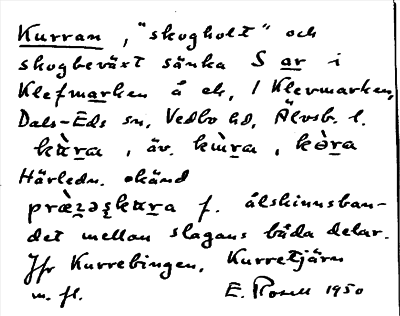 Kurran, "skogholt" och
skogbeväxt sänka S ar i
Klefmarken å ek, / Klevmarken,
Dals-Eds sn, Vedbo hd, Älvsb. l.
kɯ̀ra, äv. kɯ̀ra, kə̀ra
Härledn. okänd
f. ålskinnsban-
det mellan slagans båda delar.
Jfr Kurrebingen, Kurretjärn
m. fl. E. Rosell 1950